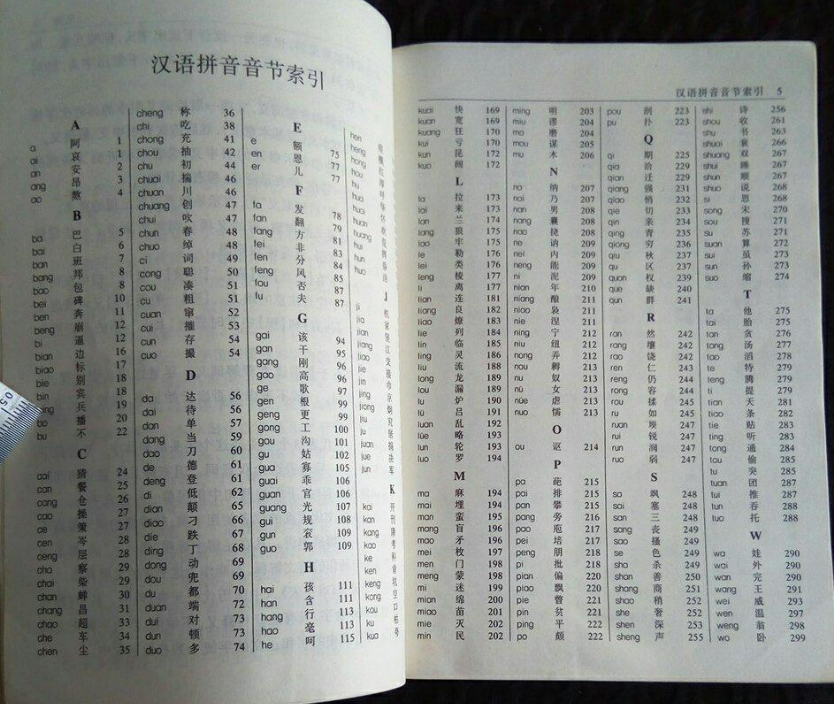 汉语拼音音节索引
A
a 阿 1
ai 哀 1
an 安 2
ang 昂 3
ao 熬 4
B
ba 巴 5
bai 白 6
ban 班 7
bang 邦 8
bao 包 8
bei 碑 10
ben 奔 11
beng 崩 12
bi 逼 12
bian 边 16
biao 标 17
bie 别 18
bin 宾 18
bing 兵 19
bo 播 20
bu 不 22
C
cai 猜 24
can 餐 25
cang 仓 26
cao 操 27
ce 策 27
cen 岑 28
ceng 层 28
cha 察 29
chai 柴 29
chan 婵 30
chang 昌 31
chao 超 33
che 车 34
chen 尘 35
cheng 称 36
chi 吃 38
chong 充 41
chou 抽 42
chu 初 44
chuai 揣 46
chuan 川 46
chuang 创 47
chui 吹 47
chun 春 48
chuo 绰 48
ci 词 49
cong 聪 50
cou 凑 51
cu 粗 51
cuan 窜 52
cui 摧 53
cun 存 54
cuo 撮 54
D
da 达 56
dai 待 56
dan 单 57
dang 当 59
dao 刀 60
de 德 61
deng 登 61
di 低 62
dian 颠 65
diao 刁 66
die 跌 67
ding 丁 68
dong 动 69
dou 兜 69
du 都 70
duan 端 72
dui 对 73
dun 顿 73
duo 多 74
E
e 额 75
en 恩 77
er 儿 77
F
fa 发 78
fan 翻 79
fang 方 81
fei 非 83
fen 分 84
feng 风 85
fou 否 87
fu 夫 87
G
gai 该 94
gan 干 94
gang 刚 95
gao 高 96
ge 歌 96
gen 根 97
geng 更 99
gong 工 100
gou 沟 101
gu 姑 102
gua 寡 105
guai 乖 106
guan 官 106
guang 光 107
gui 规 108
gun 衮 109
guo 郭 109
H
hai 孩 111
han 含 111
hang 行 113
hao 毫 113
he 呵 115
hen
heng
hong
hou
hu
hua
huai
huan
huang
hui
hun
huo
J
ji
jia
jian
jiang
jiao
jie
jin
jing
jiong
jiu
ju
juan
jue
jun
K
kai
kan
kang
kao
ke
ken
keng
kong
kou
ku
kua
汉语拼音音节索引 5
kuai 快 169
kuan 宽 169
kuang 狂 170
kui 亏 170
kun 昆 172
kuo 阔 172
L
la 拉 173
lai 来 173
lan 兰 174
lang 狼 175
lao 牢 175
le 勒 176
lei 类 176
leng 棱 177
li 离 177
lian 连 181
liang 良 182
liao 燎 183
lie 列 184
lin 临 185
ling 灵 186
liu 流 188
long 龙 189
lou 漏 189
lu 炉 190
lü 吕 191
luan 乱 192
lüe 略 193
lun 轮 193
luo 罗 194
M
ma 麻 194
mai 埋 194
man 蛮 195
mang 盲 196
mao 矛 196
mei 枚 197
men 门 198
meng 蒙 198
mi 迷 199
mian 绵 200
miao 苗 201
mie 灭 202
min 民 202
ming 明 203
miu 谬 203
mo 磨 204
mou 谋 205
mu 木 206
N
na 纳 207
nai 乃 207
nan 男 208
nang 囊 208
nao 挠 208
ne 讷 209
nei 内 209
neng 能 209
ni 泥 209
nian 年 210
niang 酿 211
niao 袅 211
nie 涅 211
ning 宁 212
niu 纽 212
nong 弄 212
nou 耨 213
nu 奴 213
nü 女 213
nüe 虐 213
nuo 懦 213
O
ou 讴 214
P
pa 葩 215
pai 排 215
pan 攀 215
pang 旁 216
pao 庖 217
pei 培 217
peng 朋 218
pi 批 218
pian 偏 220
piao 飘 220
pie 瞥 221
pin 贫 221
ping 平 222
po 颇 222
pou 剖 223
pu 扑 223
Q
qi 期 225
qia 洽 229
qian 迁 229
qiang 强 231
qiao 悄 232
qie 切 233
qin 亲 234
qing 青 235
qiong 穷 236
qiu 秋 237
qu 区 237
quan 权 239
que 缺 240
qun 群 241
R
ran 然 242
rang 壤 242
rao 饶 242
ren 仁 243
reng 仍 244
rong 容 244
rou 揉 246
ru 如 245
ruan 247
rui 锐 247
run 润 247
ruo 弱 247
S
sa 飒 248
sai 塞 248
san 三 248
sang 丧 249
sao 搔 249
se 色 249
sha 杀 249
shan 善 250
shang 商 251
shao 稍 252
she 奢 252
shen 深 253
sheng 声 255
shi 诗 256
shou 收 261
shu 书 263
shuai 衰 266
shuang 双 267
shui 睡 267
shun 顺 267
shuo 说 268
si 思 268
song 宋 270
sou 搜 271
su 苏 271
suan 算 272
sui 虽 273
sun 孙 273
suo 缩 274
T
ta 他 275
tai 胎 275
tan 贪 276
tang 汤 277
tao 滔 278
te 特 279
teng 腾 279
ti 提 279
tian 天 281
tiao 条 282
tie 贴 283
ting 听 283
tong 通 284
tou 偷 285
tu 突 285
tuan 团 287
tui 推 287
tun 吞 288
tuo 托 288
W
wa 娃 290
wai 外 290
wan 完 290
wang 王 291
wei 威 293
wen 温 297
weng 翁 298
wo 卧 299